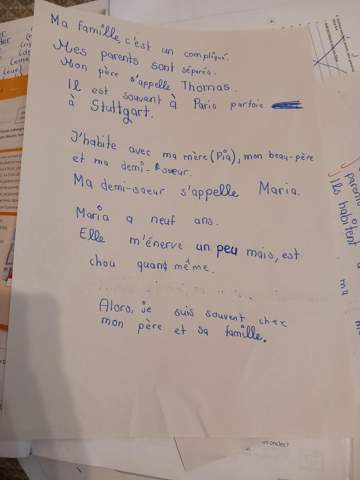 Ma famille, c'est un compliqué
Mes parents sont séparés.
Mon père s'appelle Thomas.
Il est souvent à Paris parfois
à Stuttgart.
J'habite avec ma mère (Pia), mon beau-père
et ma demi-sœur.
Ma demi-soeur s'appelle Maria.
Maria a neuf ans.
Elle m'énerve un peu mais, est
chou quand même.
Alors, je suis souvent chez
mon père et sa famille.
parents
Ils habitent
ma